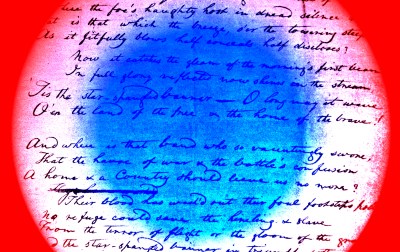 the foe's haughty host in dread silence
is that which the breeze, o'er the towering steep
As it fitfully blows, half conceals half discloses?
Now it catches the gleam of the morning's first beam
In full glory reflected now shines in the stream
'Tis the star-spangled banner — O long may it wave
O'er the land of the free & the home of the brave!
And where is that band who so vauntingly swore,
That the havoc of war & the battle's confusion
A home & a Country should leave us no more?
Their blood has wash'd out their foul footsteps
No refuge could save the hireling & slave
From the terror of flight or the gloom of the
the star-spangled banner in triumph